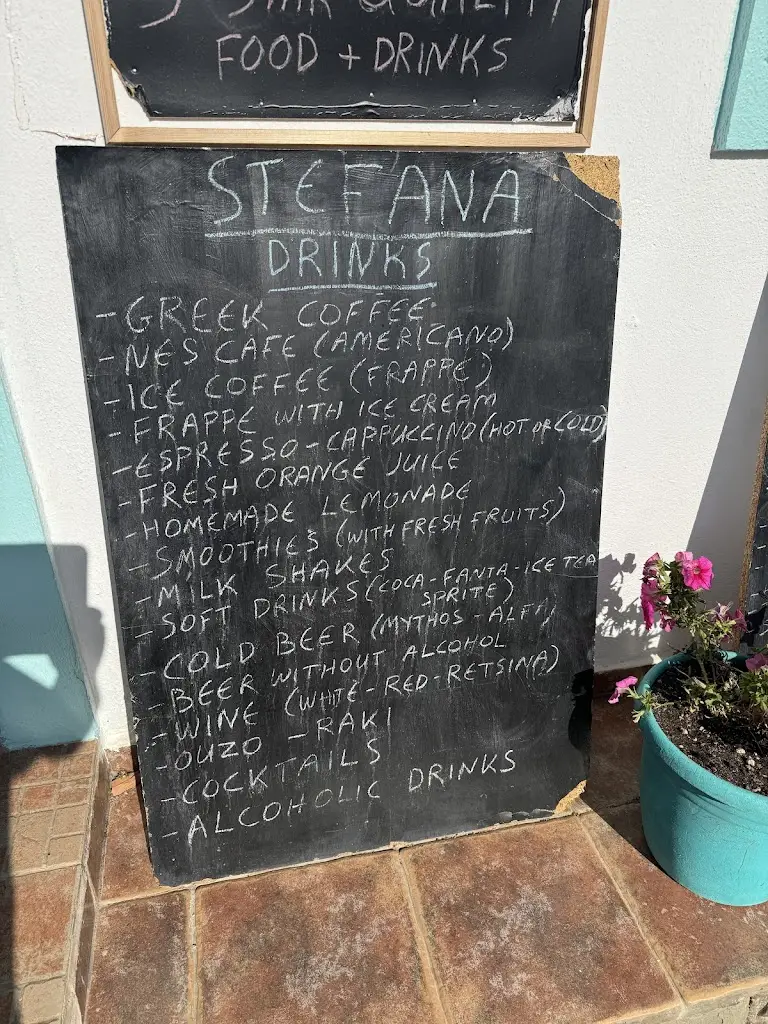 5 STAR QUALITY
FOOD + DRINKS
STEFANA
DRINKS
- GREEK COFFEE
- NES CAFE (AMERICANO)
- ICE COFFEE (FRAPPE)
- FRAPPE WITH ICE CREAM
- ESPRESSO - CAPPUCCINO (HOT OR COLD)
- FRESH ORANGE JUICE
- HOMEMADE LEMONADE
- SMOOTHIES (WITH FRESH FRUITS)
- MILK SHAKES
- SOFT DRINKS (COCA - FANTA - ICE TEA
SPRITE)
- COLD BEER (MYTHOS - ALFA)
- BEER WITHOUT ALCOHOL
- WINE (WHITE - RED - RETSINA)
- OUZO - RAKI
- COCKTAILS
- ALCOHOLIC DRINKS